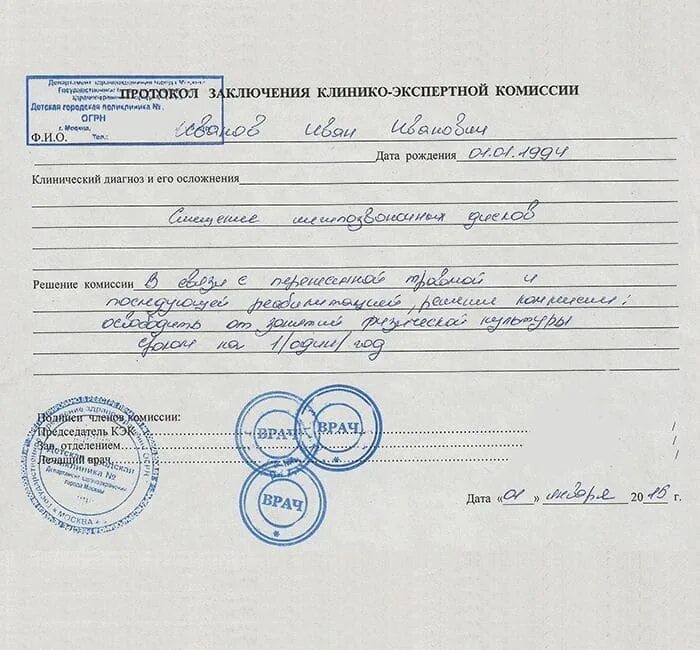 Департамент здравоохранения города Москвы
Государственное
здравоохранения
Детская городская поликлиника №
ОГРН
г. Москва,
Тел.:
ПРОТОКОЛ ЗАКЛЮЧЕНИЯ КЛИНИКО-ЭКСПЕРТНОЙ КОМИССИИ
Ф.И.О. Иванов Иван Иванович
Дата рождения 01.01.1994
Клинический диагноз и его осложнения
Смещение межпозвоночных дисков
Решение комиссии В связи с перенесенной травмой и
последующей реабилитацией, решение комиссии:
освободить от занятий физической культуры
сроком на 1/один/год
Подписи членов комиссии:
Председатель КЭК
Зав. отделением.
Лечащий врач
ВРАЧ
ВРАЧ
ВРАЧ
Детская городская
поликлиника №
Департамент здравоохранения
города Москвы
* МОСКВА *
Дата «01» января 2016 г.